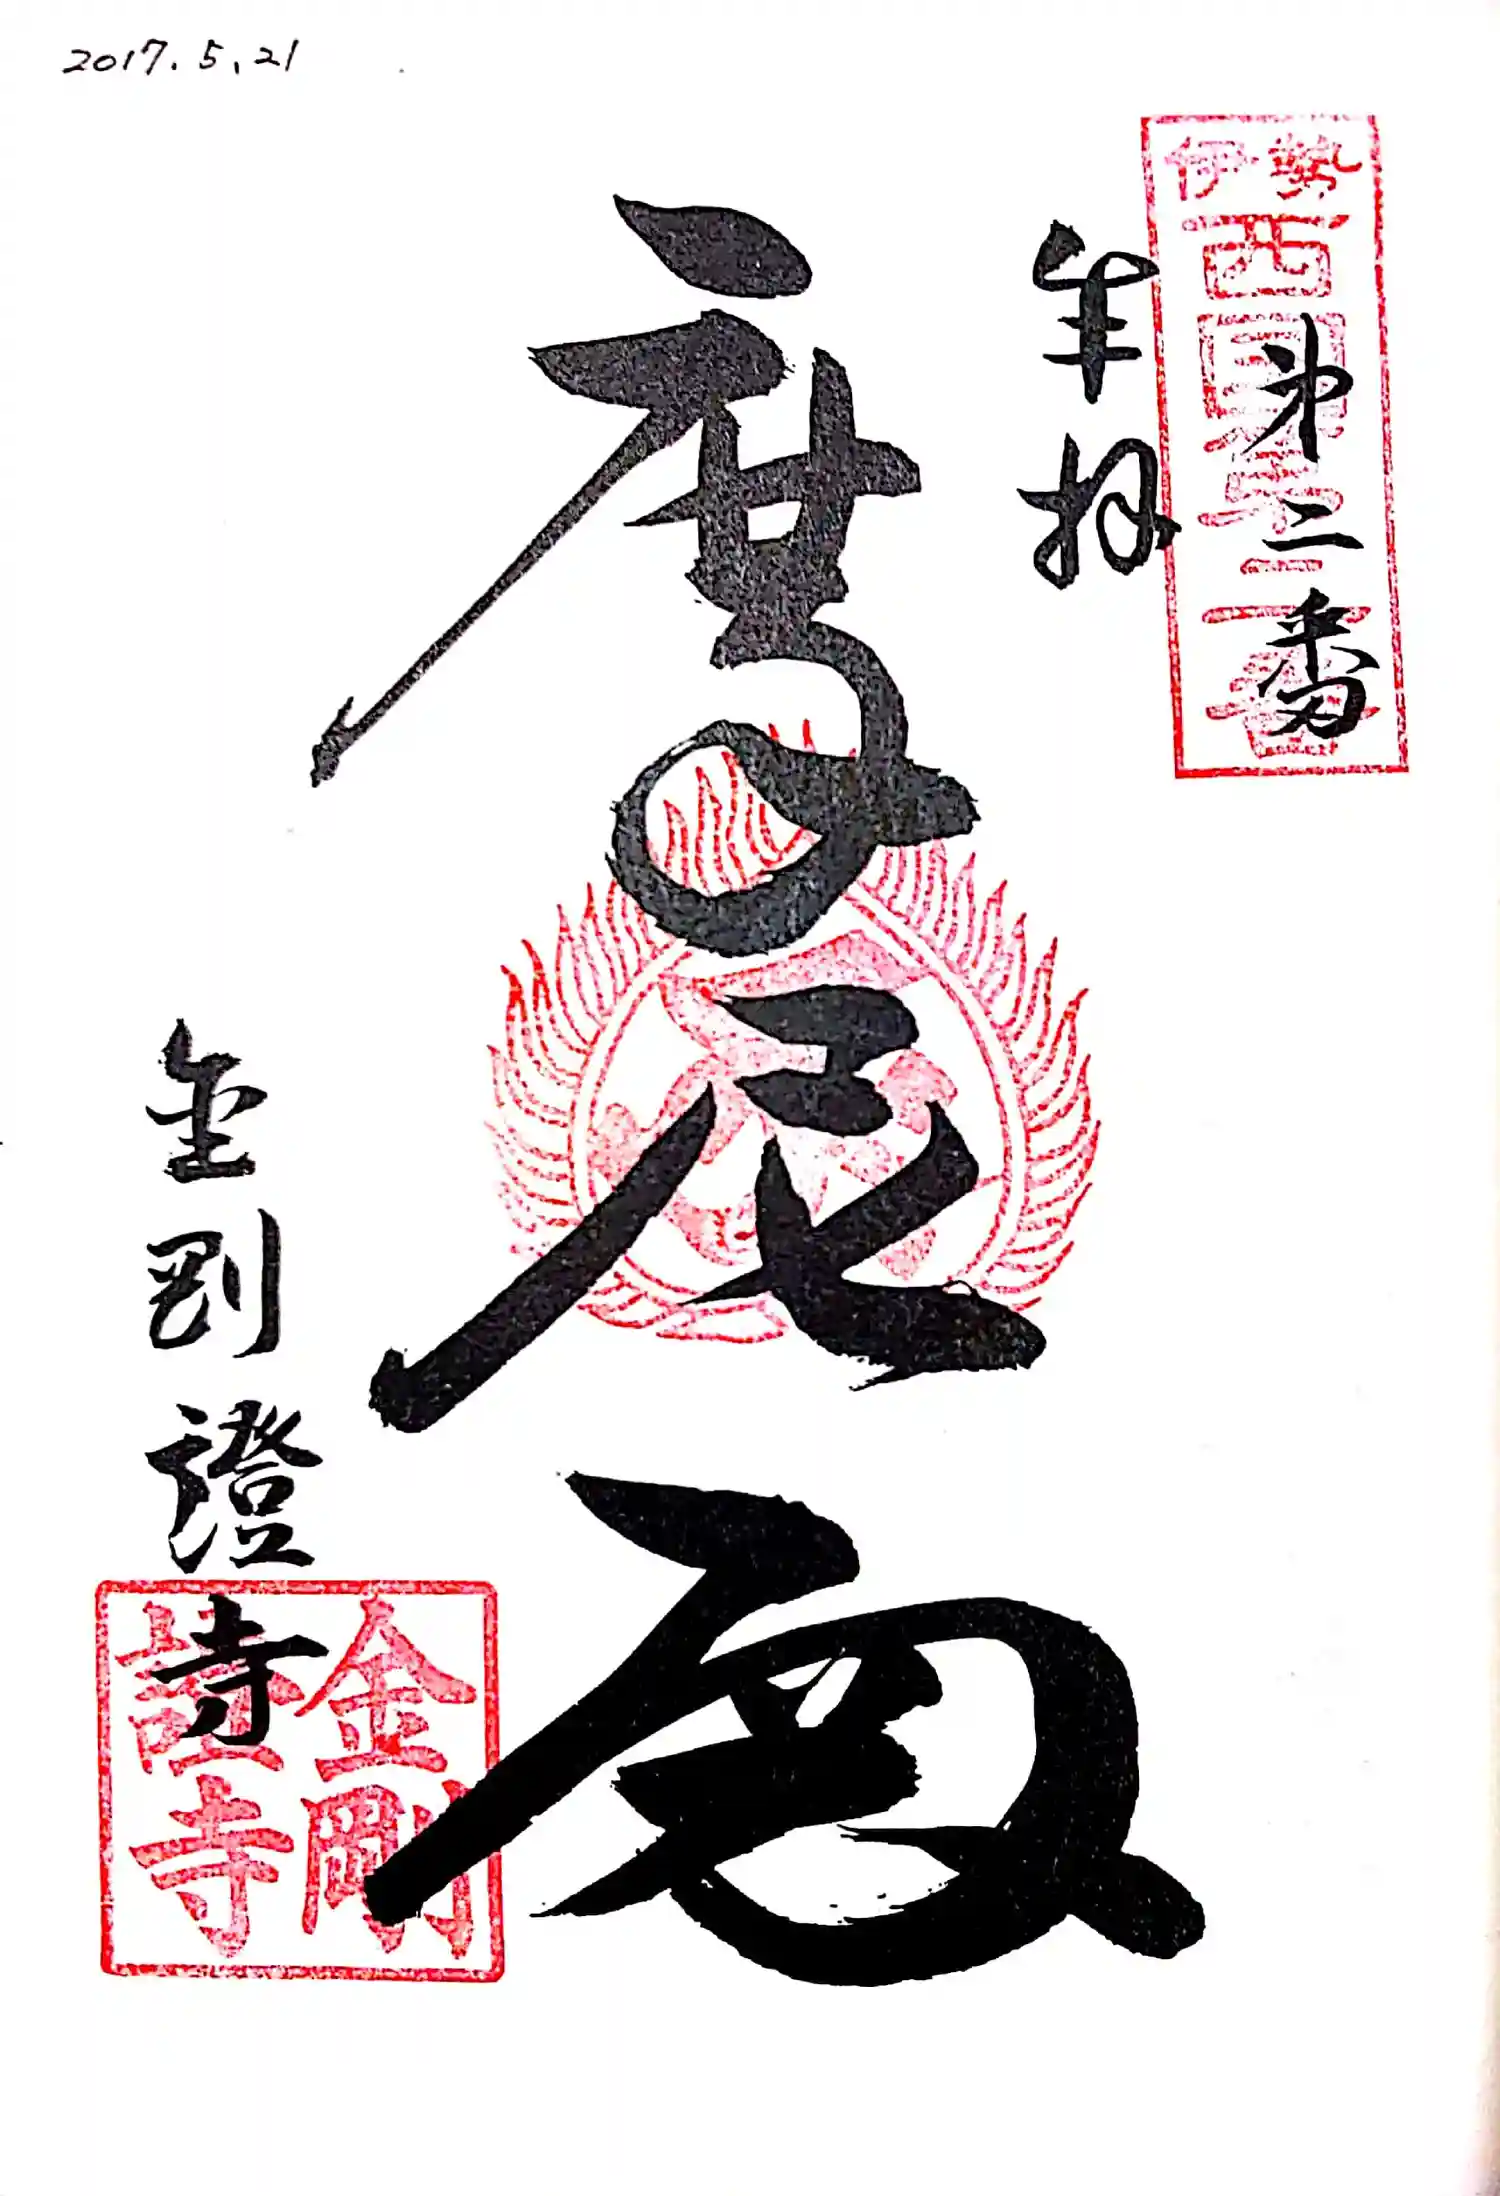 2017.5.21
伊勢
西国
第二番
奉拝
摩尼殿
金剛證寺
金剛
証寺